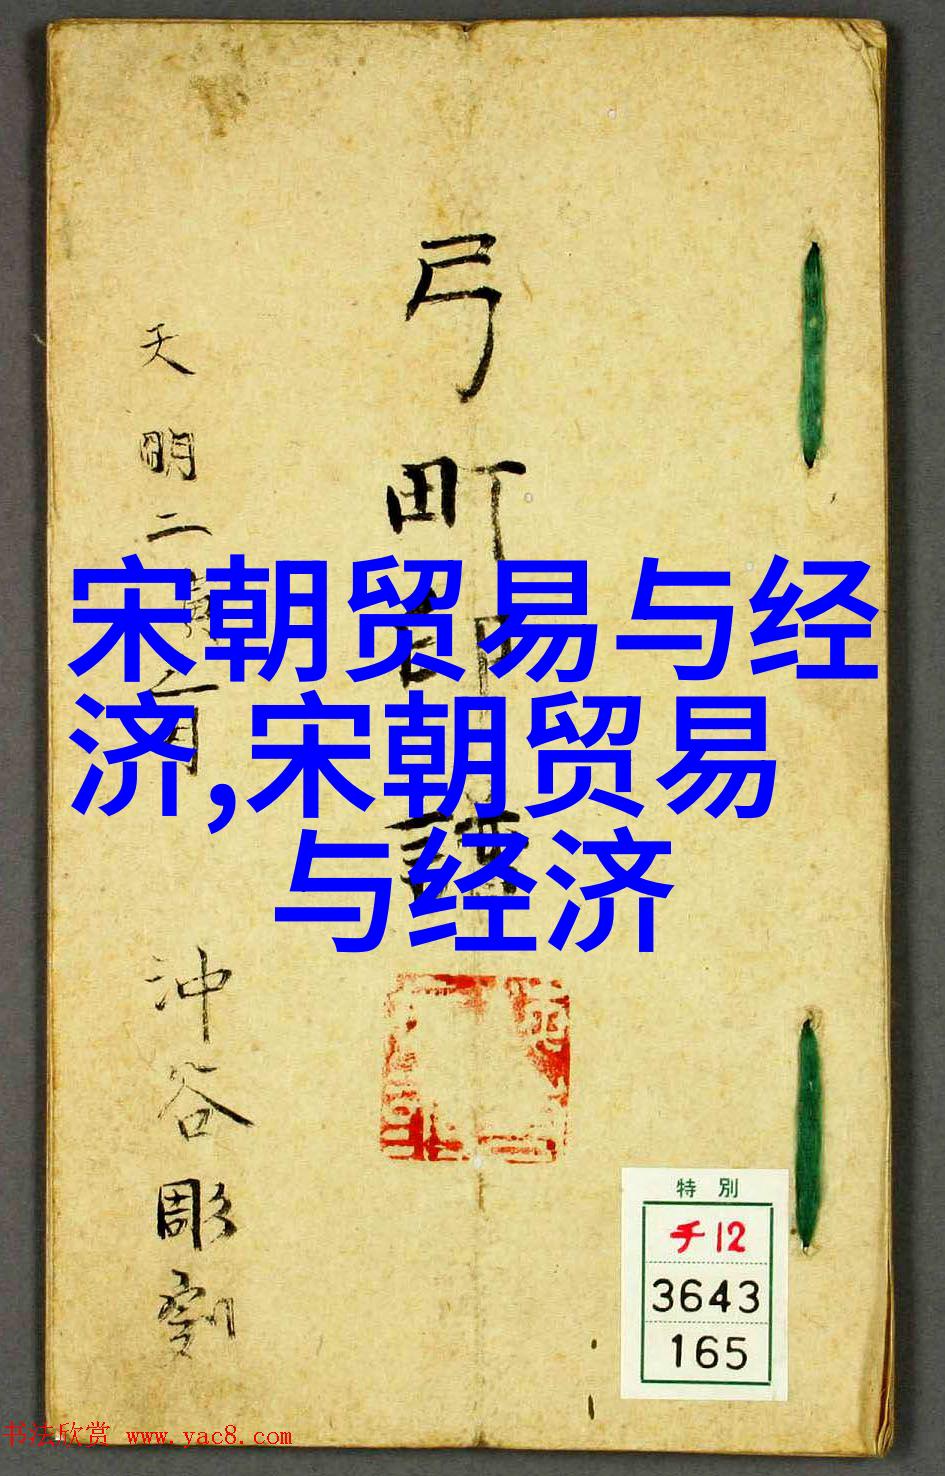 宋朝贸易与经
济,宋朝贸易
与经济
弓町印譜
天明二寅六月
沖谷彫刻
特別
チ12
3643
165
书法欣赏 www.yac8.com